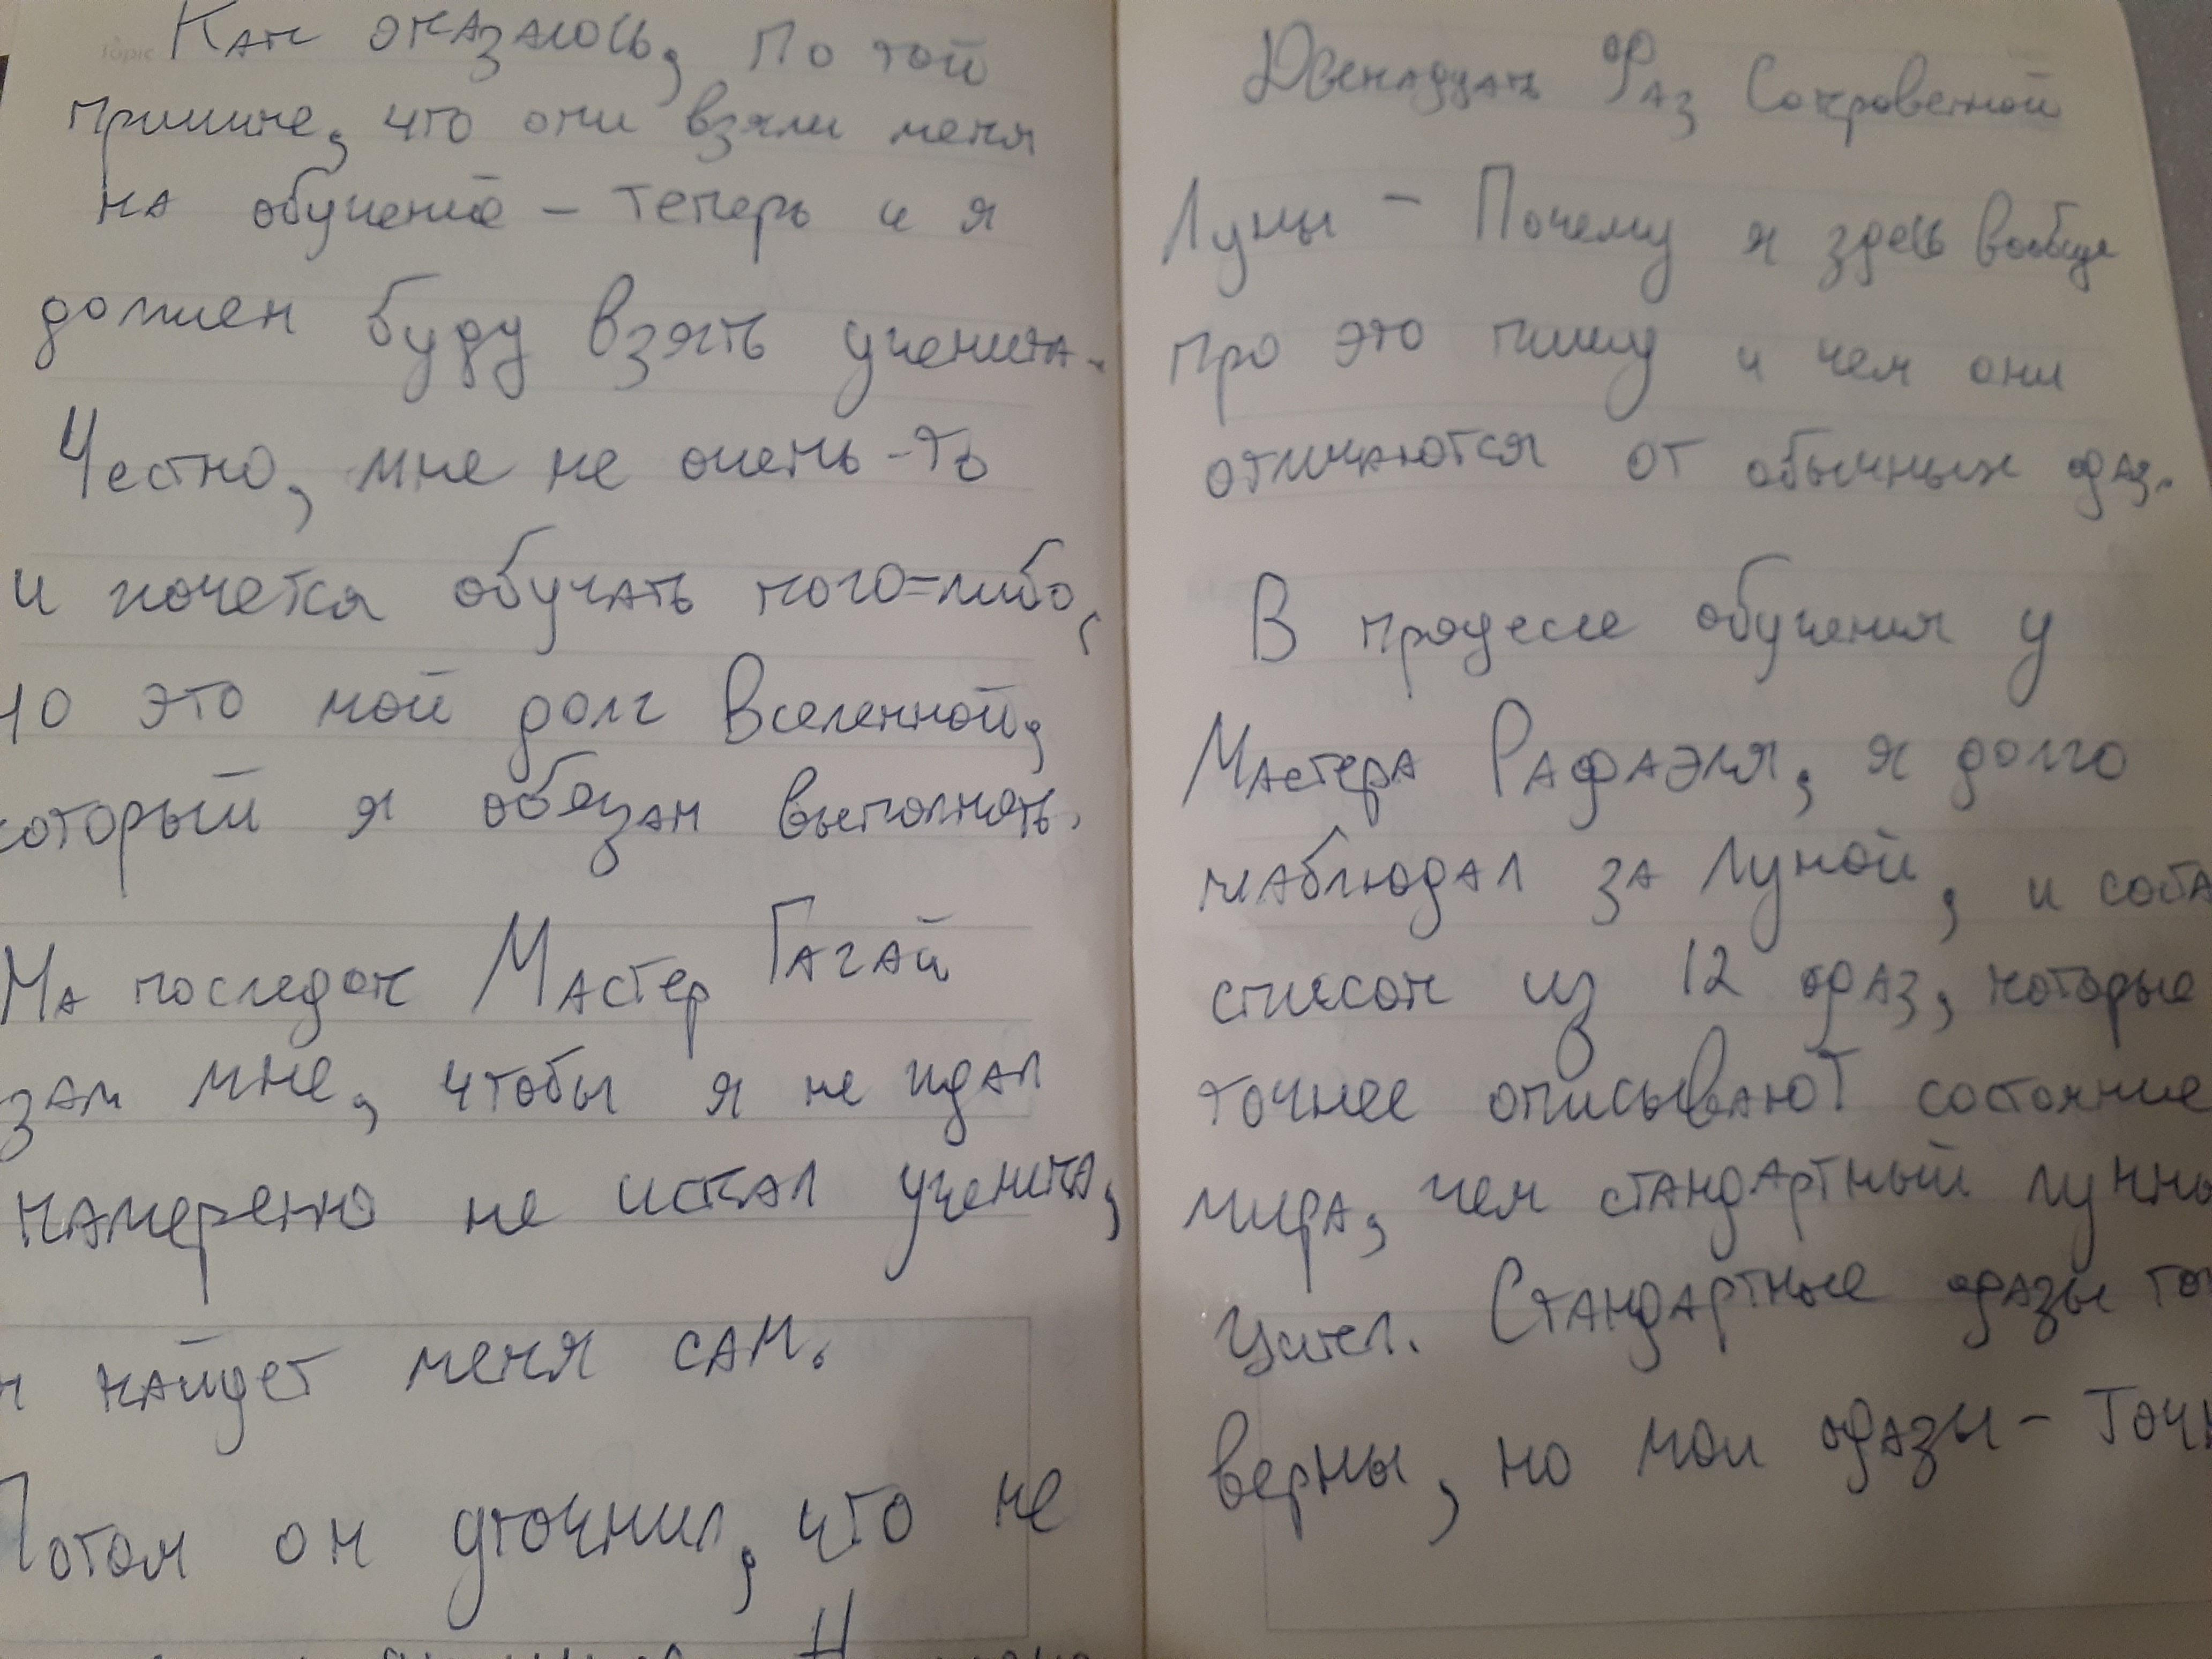 Как оказалось, По той
причине, что они взяли меня
на обучение – теперь и я
должен буду взять ученика.
Честно, мне не очень-то
и хочется обучать кого-либо,
но это мой долг Вселенной,
который я обязан выполнять.
На последок Мастер Гагай
зал мне, чтобы я не ждал
намеренно не искал ученика,
н найдет меня сам.
Потом он уточнил, что не
Двенадцать Фаз Сокровенной
Луны – Почему я здесь вообще
про это пишу и чем они
отличаются от обычных фаз.
В процессе обучения у
Мастера Рафаэля, я долго
наблюдал за Луной, и соста
список из 12 фаз, которые
точнее описывают состояние
мира, чем стандартный лунны
цикл. Стандартные фазы то
верны, но мои фазы – Точн